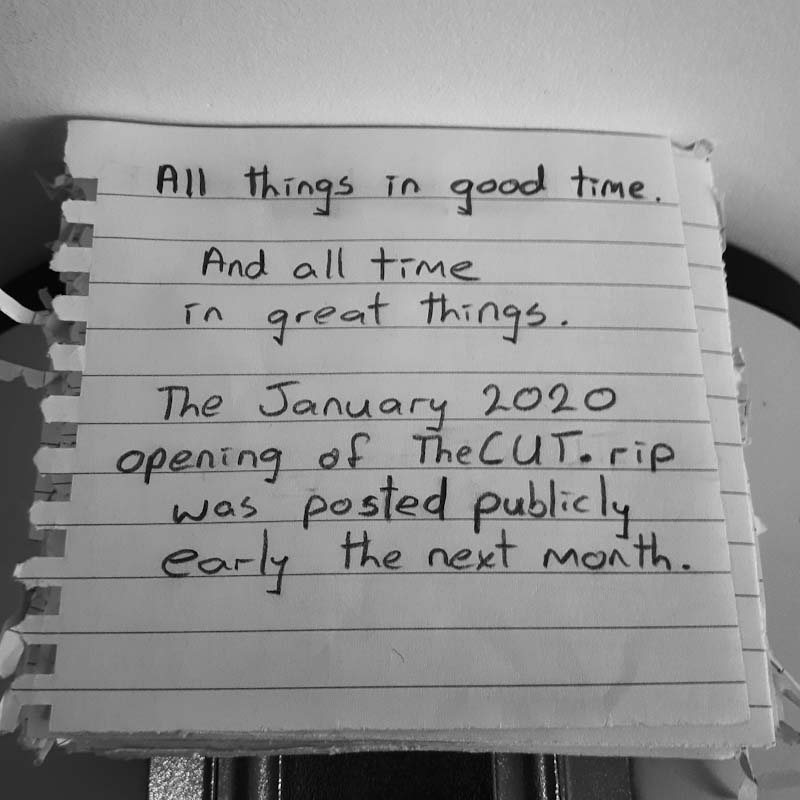 All things in good time.
And all time
in great things.
The January 2020
opening of TheCUT.rip
was posted publicly
early the next month.